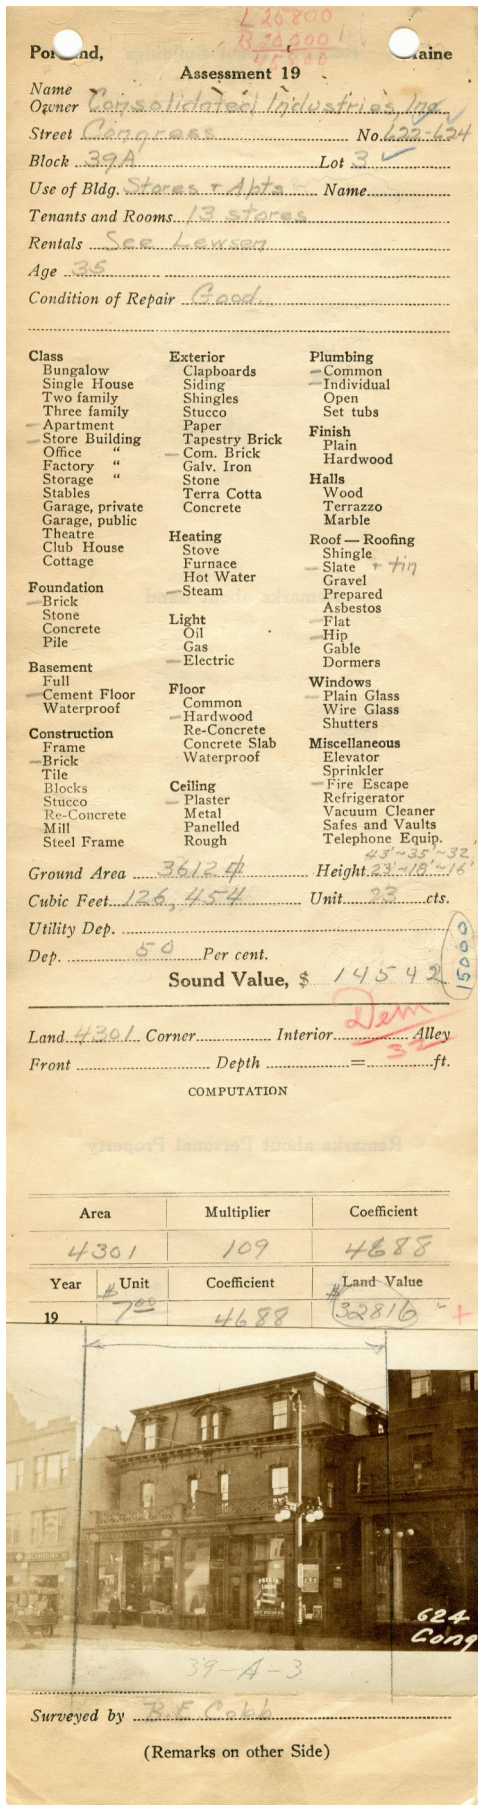 L 25800
B 20000
45800
Portland, Maine
Assessment 19
Name
Owner Consolidated Industries, Inc
Street Congress No. 622-624
Block 39A Lot 3
Use of Bldg. Stores + Apts Name
Tenants and Rooms 13 stores
Rentals See Lewsen
Age 35
Condition of Repair Good
Class
Bungalow
Single House
Two family
Three family
Apartment
Store Building
Office "
Factory "
Storage "
Stables
Garage, private
Garage, public
Theatre
Club House
Cottage
Foundation
Brick
Stone
Concrete
Pile
Basement
Full
Cement Floor
Waterproof
Construction
Frame
Brick
Tile
Blocks
Stucco
Re-Concrete
Mill
Steel Frame
Exterior
Clapboards
Siding
Shingles
Stucco
Paper
Tapestry Brick
Com. Brick
Galv. Iron
Stone
Terra Cotta
Concrete
Heating
Stove
Furnace
Hot Water
Steam
Light
Oil
Gas
Electric
Floor
Common
Hardwood
Re-Concrete
Concrete Slab
Waterproof
Ceiling
Plaster
Metal
Panelled
Rough
Plumbing
Common
Individual
Open
Set tubs
Finish
Plain
Hardwood
Halls
Wood
Terrazzo
Marble
Roof — Roofing
Shingle
Slate + tin
Gravel
Prepared
Asbestos
Flat
Hip
Gable
Dormers
Windows
Plain Glass
Wire Glass
Shutters
Miscellaneous
Elevator
Sprinkler
Fire Escape
Refrigerator
Vacuum Cleaner
Safes and Vaults
Telephone Equip.
43'~35'~32'
Ground Area 3612 Height 23'~18'~16'
Cubic Feet 126,454 Unit 23 cts.
Utility Dep.
Dep. 50 Per cent.
Sound Value, $ 14542
15000
Dem
32
Land 4301 Corner Interior Alley
Front Depth = ft.
COMPUTATION
Area Multiplier Coefficient
4301 109 4688
Year $ Unit Coefficient $ Land Value
19 7.00 4688 32816 +
624
Cong
39-A-3
Surveyed by B. E. Cobb
(Remarks on other Side)